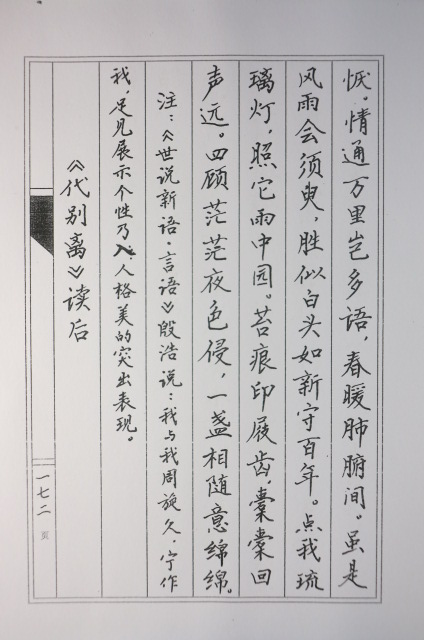 恹。情通万里岂多语，春暖肺腑间。虽是
风雨会须臾，胜似白头如新守百年。点我琉
璃灯，照它雨中园。苔痕印屐齿，橐橐回
声远。四顾茫茫夜色侵，一盏相随意绵绵。
注：《世说新语·言语》殷浩说：我与我周旋久，宁作
我，足见展示个性乃入人格美的突出表现。
《代别离》读后
一七二页